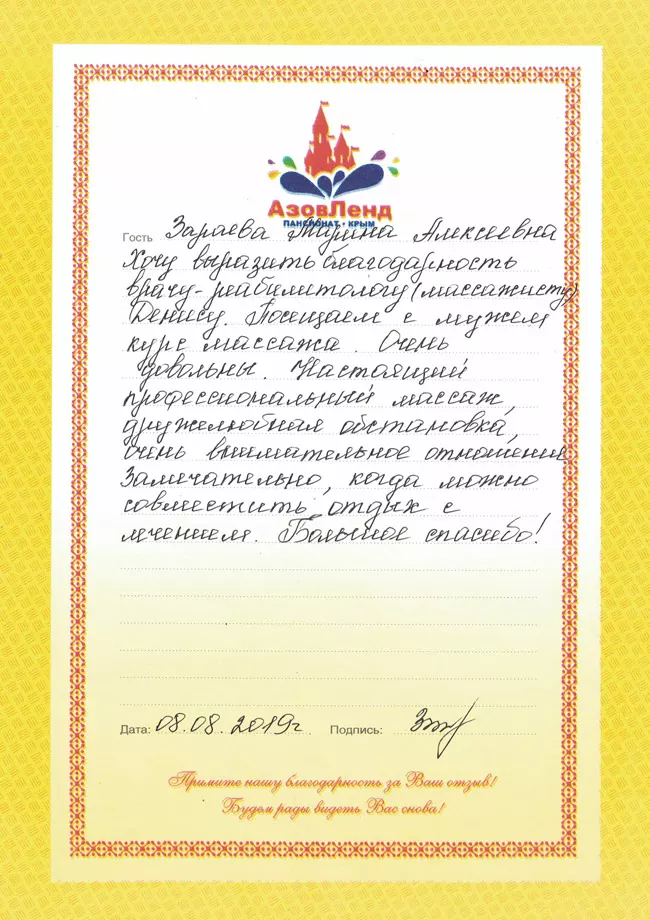 АзовЛенд
ПАНСИОНАТ • КРЫМ
Гость Зараева Марина Алексеевна
Хочу выразить благодарность
врачу-реабилитологу (массажисту)
Денису. Посещаем с мужем
курс массажа. Очень
довольны. Настоящий
профессиональный массаж,
дружелюбная обстановка,
очень внимательное отношение.
Замечательно, когда можно
совместить отдых с
лечением. Большое спасибо!
Дата: 08.08.2019г. Подпись:
Примите нашу благодарность за Ваш отзыв!
Будем рады видеть Вас снова!